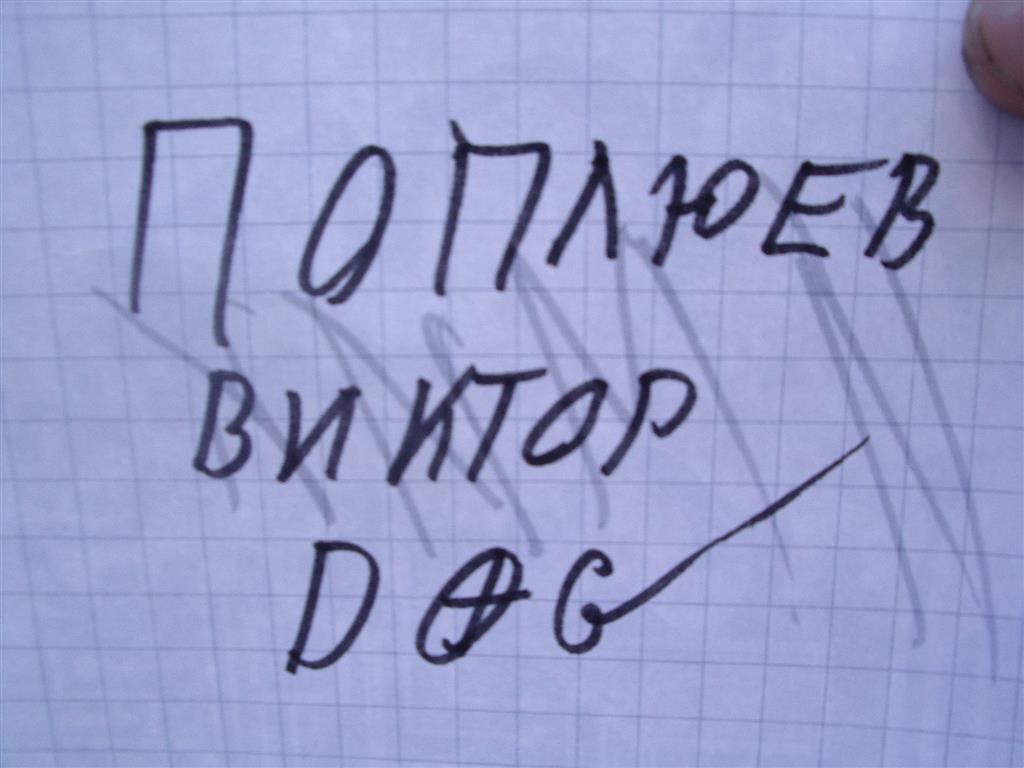 ПОПЛЮЕВ
ВИКТОР
DOG